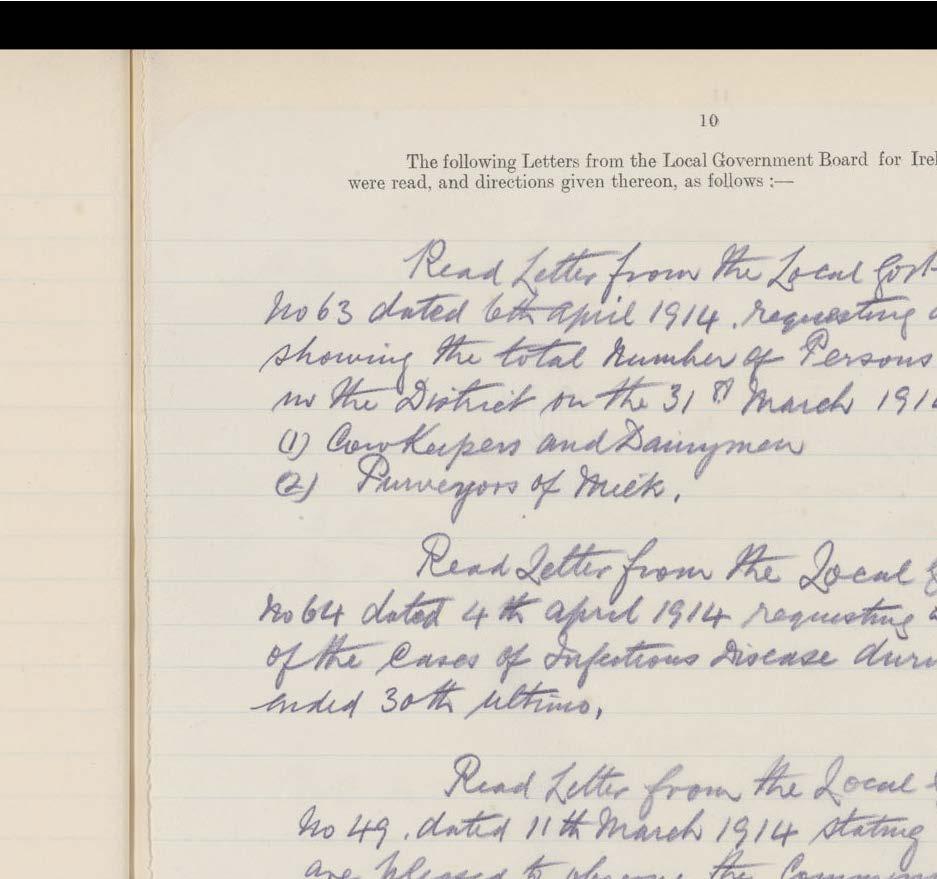 10
The following Letters from the Local Government Board for Irel
were read, and directions given thereon, as follows :—
Read Letter from the Local Govt
No 63 dated 6th April 1914. requesting a
showing the total Number of Persons
in the District on the 31st March 191
(1) CowKeepers and Dairymen
(2) Purveyors of Milk.
Read Letter from the Local G
No 64 dated 4th April 1914 requesting
of the Cases of Infectious Disease duri
ended 30th ultimo.
Read Letter from the Local
No 49. dated 11th March 1914 stating
are pleased to observe the Commen